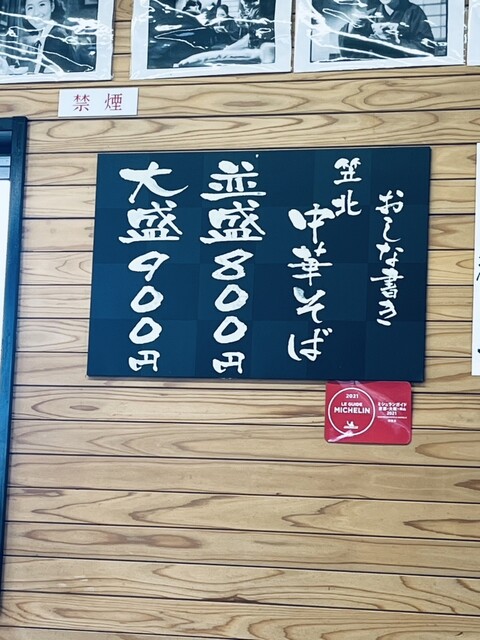 禁煙
おしな書き
笠北
中華そば
並盛800円
大盛900円
2021
LE GUIDE
MICHELIN
ミシュランガイド
2021